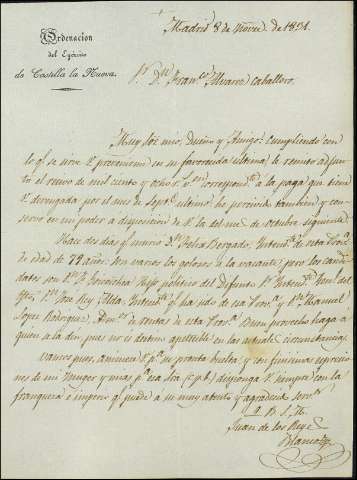 Ordenacion
del Egército
de Castilla la Nueva.
Madrid 8 de Novre. de 1831.
Sr. Dn. Franco. Alvarez Caballero.
Muy Sor. mio, Dueño y Amigo: cumpliendo con
lo qe. se sirve V. prevenirme en su favorecida ultima le remito adjun
to el recivo de mil ciento y ocho rs. von. correspondte. á la paga que tiene
V. devengada por el mes de Sepre. ultimo he percivido tambien y con
servo en mi poder á disposicion de V. la del mes de octubre siguiente
Hace dos dias qe. murió Dn. Felix Bergado, Intendte. de esta Prova.
de edad de 72 años. Son varios los golosos á la vacante, pero los candi
datos son Dn. Hijo politico del Difunto Dn. Intendte. Genl. del
Egto., Dn. José Rey Alda Intendte. qe. ha sido de esa Prova. y Dn. Manuel
Lopez Rodriguez, Admor. de rentas de esta Prova. Buen provecho haga á
quien á la den pues no es destino apetecible en las actuales circunstancias.
Vamos pues, animese V. pa. su pronta buelta, y con finisimas expresio
nes de mi Muger y mias pa. esa Sra. (c.p.b.) disponga V. siempre con la
franqueza é imperio qe. puede á su muy atento y agradecido servor.
Q. B. S. M.
Juan de los Reyes
Blanco